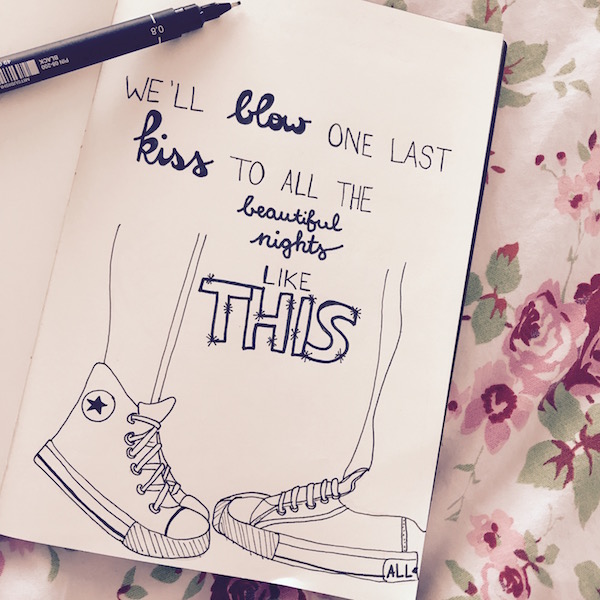 0.8
PIN 08-200
BLACK
WE'LL blow ONE LAST
kiss TO ALL THE
beautiful
nights
LIKE
THIS
ALL